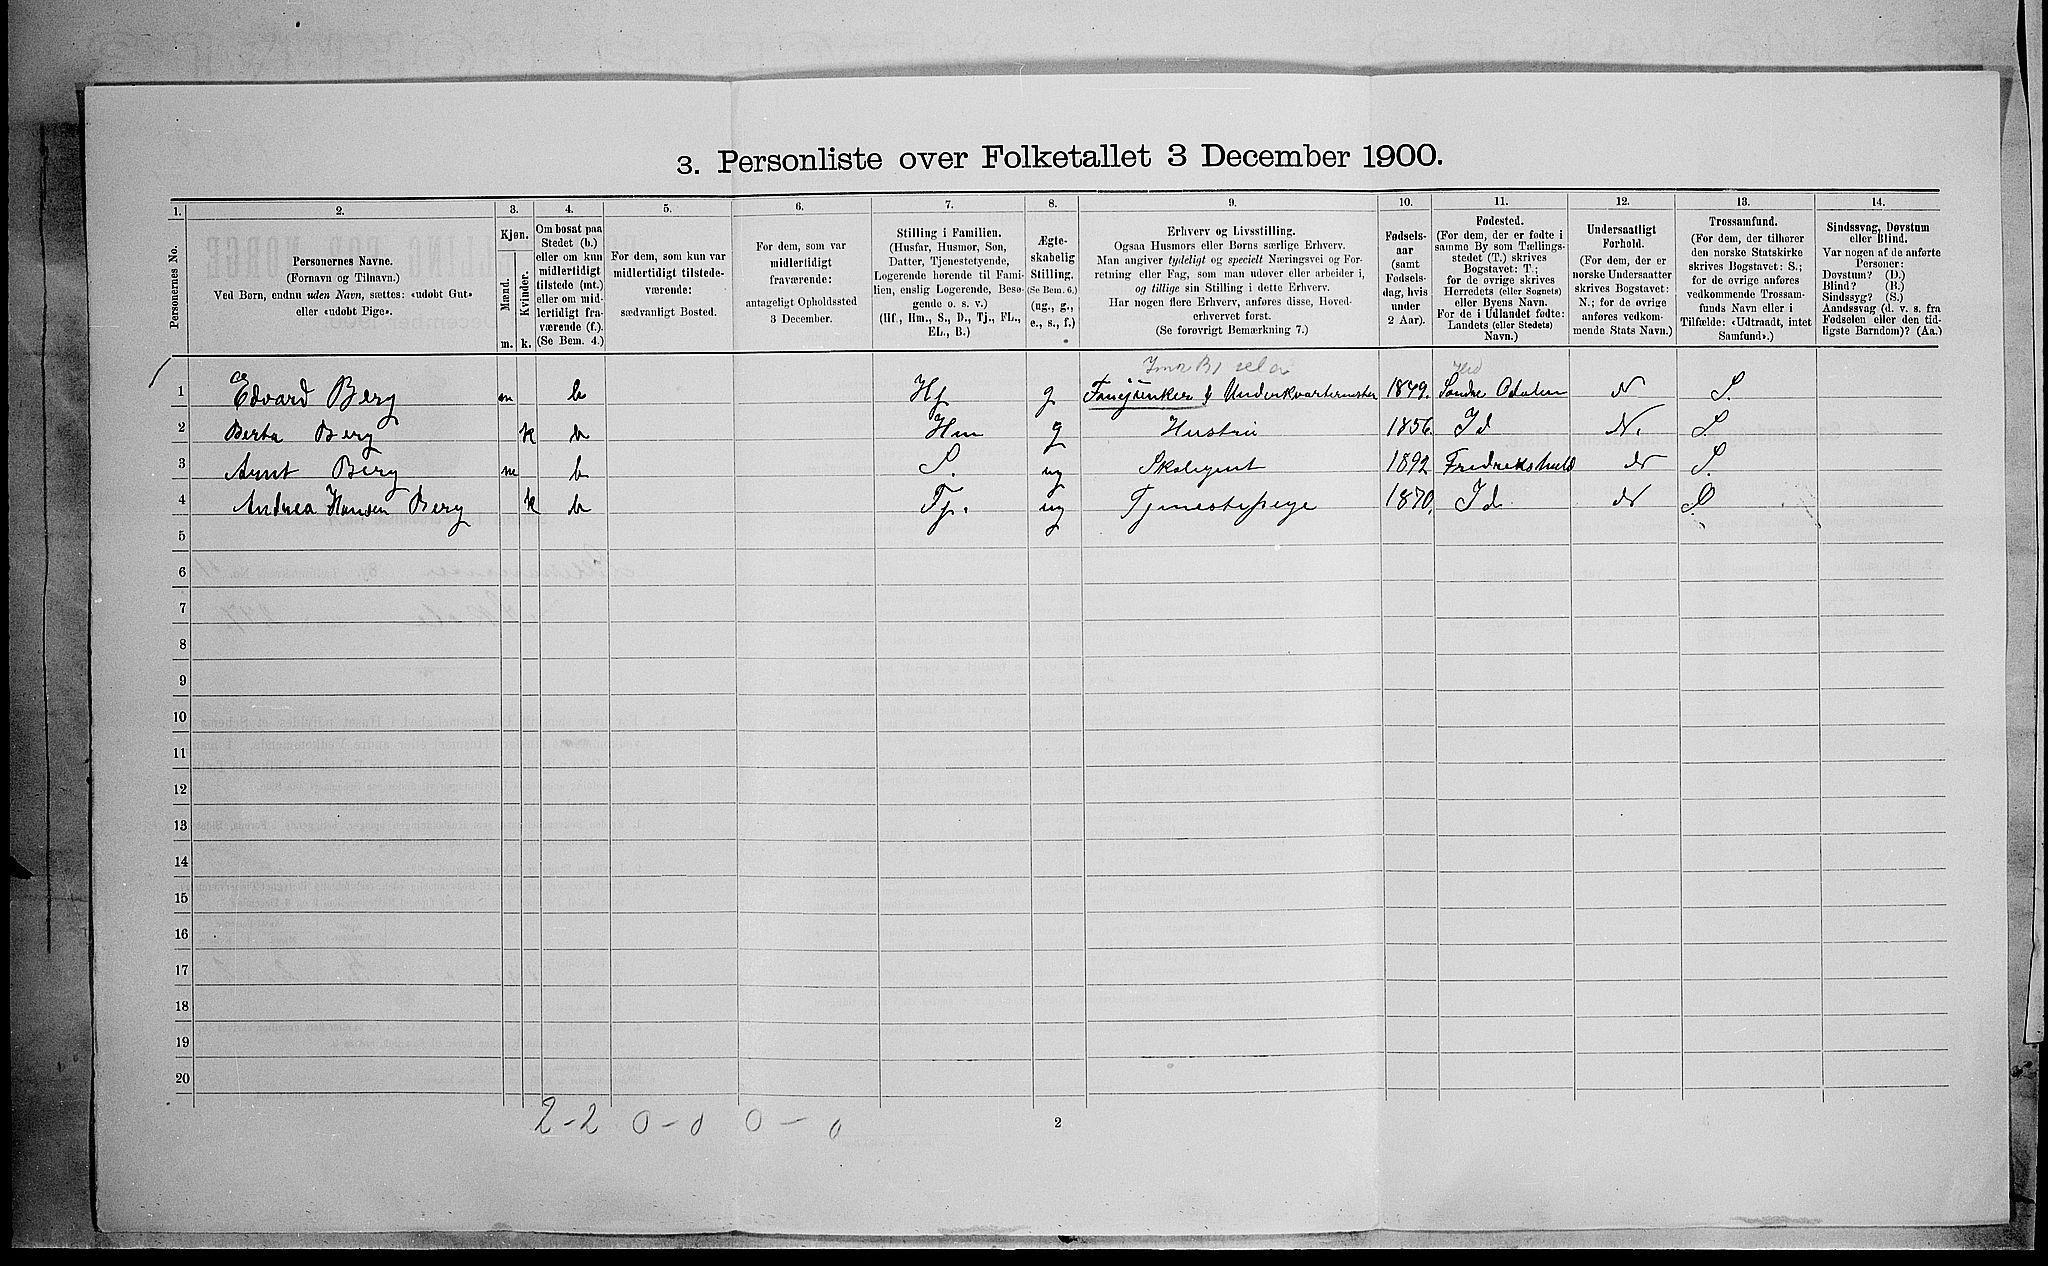 3. Personliste over Folketallet 3 December 1900.
1. 2. 3. 4. 5. 6. 7. 8. 9. 10. 11. 12. 13. 14.
Personernes No.
Personernes Navne.
(Fornavn og Tilnavn.)
Ved Børn, endnu uden Navn, sættes: «udøbt Gut»
eller «udøbt Pige».
Kjøn.
Mænd.
Kvinder.
m. k.
Om bosat paa
Stedet (b.)
eller om kun
midlertidigt
tilstede (mt.)
eller om mid-
lertidigt fra-
værende (f.).
(Se Bem. 4.)
For dem, som kun var
midlertidigt tilstede-
værende:
sædvanligt Bosted.
For dem, som var
midlertidigt
fraværende:
antageligt Opholdssted
3 December.
Stilling i Familien.
(Husfar, Husmor, Søn,
Datter, Tjenestetyende,
Logerende hørende til Fami-
lien, enslig Logerende, Besø-
gende o. s. v.)
(Hf., Hm., S., D., Tj., FL.,
EL., B.)
Ægte-
skabelig
Stilling.
(Se Bem. 6.)
(ug., g.,
e., s., f.)
Erhverv og Livsstilling.
Ogsaa Husmors eller Børns særlige Erhverv.
Man angiver tydeligt og specielt Næringsvei og For-
retning eller Fag, som man udøver eller arbeider i,
og tillige sin Stilling i dette Erhverv.
Har nogen flere Erhverv, anføres disse, Hoved-
erhvervet først.
(Se forøvrigt Bemærkning 7.)
Fødsels-
aar
(samt
Fødsels-
dag, hvis
under
2 Aar).
Fødested.
(For dem, der er fødte i
samme By som Tællings-
stedet (T.) skrives
Bogstavet: T.;
for de øvrige skrives
Herredets (eller Sognets)
eller Byens Navn.
For de i Udlandet fødte:
Landets (eller Stedets)
Navn.)
Undersaatligt
Forhold.
(For dem, der er
norske Undersaatter
skrives Bogstavet:
N.; for de øvrige
anføres vedkom-
mende Stats Navn.)
Trossamfund.
(For dem, der tilhører
den norske Statskirke
skrives Bogstavet: S.;
for de øvrige anføres
vedkommende Trossam-
funds Navn eller i
Tilfælde: «Udtraadt, intet
Samfund».)
Sindssvag, Døvstum
eller Blind.
Var nogen af de anførte
Personer:
Døvstum? (D.)
Blind? (B.)
Sindssyg? (S.)
Aandssvag (d. v. s. fra
Fødselen eller den tid-
ligste Barndom)? (Aa.)
1 Edvard Berg m b Hf g Fanejunker & Underkvartermester 1849. Søndre Odalen N S.
2 Berta Berg k b Hm g Hustru 1856. Id N. S.
3 Arnt Berg m b S. ug Skolegut 1892 Fredrikshald N S.
4 Andrea Hansen Berg k b Tj. ug Tjenestepige 1870. Id N S.
5
6
7
8
9
10
11
12
13
14
15
16
17
18
19
20
2-2 0-0 0-0
2